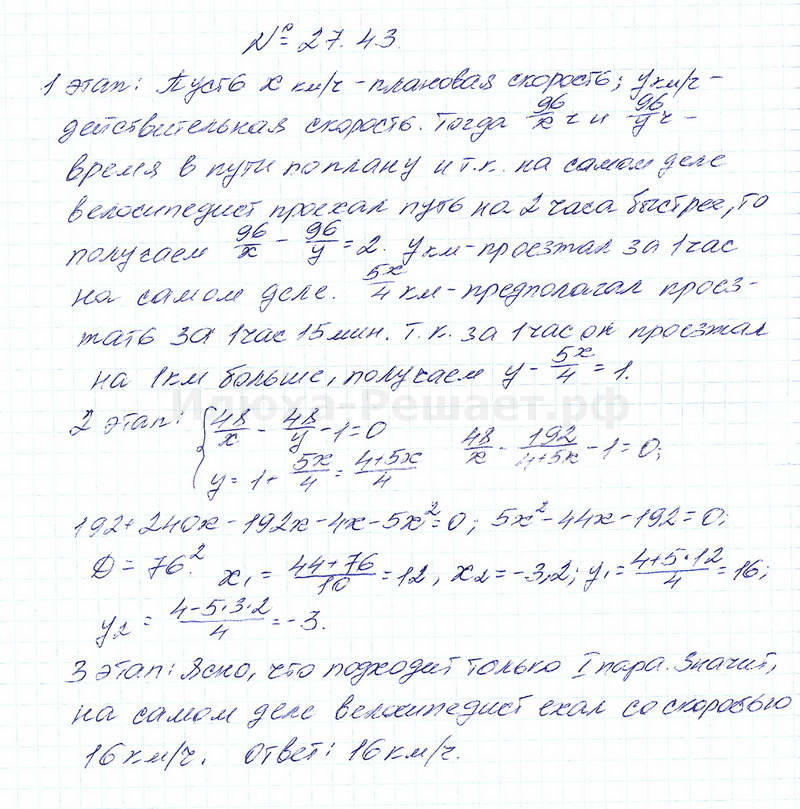 № 27.43.
1 этап: Пусть x км/ч - плановая скорость; y км/ч -
действительная скорость. Тогда 96/x ч и 96/y ч -
время в пути по плану и т.к. на самом деле
велосипедист проехал путь на 2 часа быстрее, то
получаем 96/x - 96/y = 2. y км - проезжал за 1 час
на самом деле. 5x/4 км - предполагал проез-
жать за 1 час 15 мин. Т.к. за 1 час он проезжал
на 1 км больше, получаем y - 5x/4 = 1.
Илюха-Решает.рф
2 этап: { 48/x - 48/y - 1 = 0
y = 1 + 5x/4 = 4+5x/4
48/x - 192/4+5x - 1 = 0;
192 + 240x - 192x - 4x - 5x² = 0; 5x² - 44x - 192 = 0;
D = 76². x₁ = 44+76/10 = 12, x₂ = -3,2; y₁ = 4+5·12/4 = 16;
y₂ = 4-5·3·2/4 = -3.
3 этап: Ясно, что подходит только I пара. Значит,
на самом деле велосипедист ехал со скоростью
16 км/ч. Ответ: 16 км/ч.